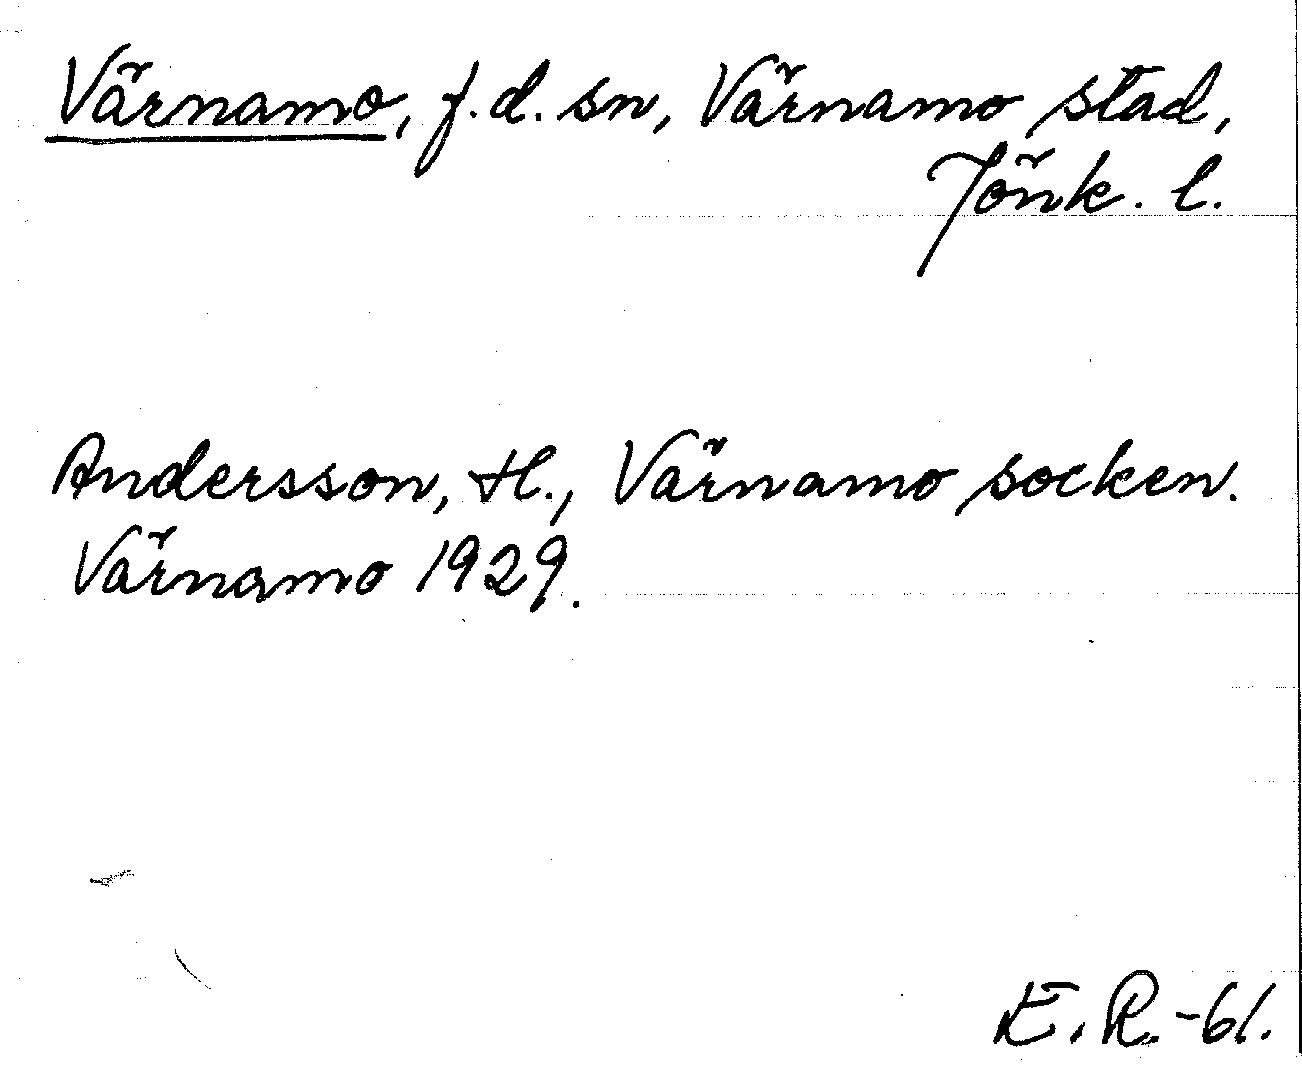 Värnamo, f.d. sn, Värnamo stad,
Jönk. l.
Andersson, H., Värnamo socken.
Värnamo 1929.
E.R.-61.